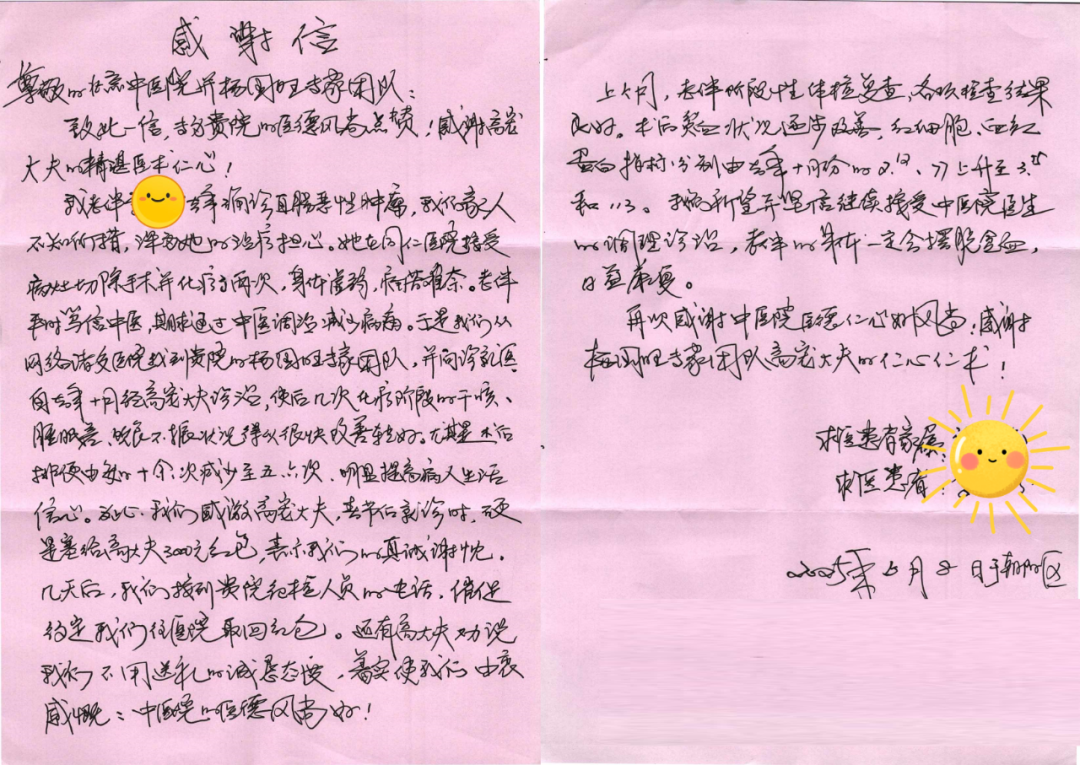 感谢信
尊敬的北京中医院并杨国旺专家团队：
致此一信，专为贵院的医德风尚点赞！感谢高宏
大夫的精湛医术仁心！
我老伴 去年确诊直肠恶性肿瘤，我们家人
不知所措，深为她的治疗担心。她在同仁医院接受
病灶切除手术并化疗两次，身体虚弱，病苦难奈。老伴
平时笃信中医，期求通过中医调治减少病痛。于是我们从
网络诸多医院找到贵院的杨国旺专家团队，并问诊就医
自去年十月经高宏大夫诊治，使后几次化疗阶段的干咳、
睡眠差、饮食不振状况得以很快改善转好。尤其是术后
排便由每日十余次减少至五、六次，明显提高病人生活
信心。为此，我们感激高宏大夫，春节后就诊时，硬
是塞给高大夫3000元红包，表示我们的真诚谢忱。
几天后，我们接到贵院纪检人员的电话，催促
约定我们往医院取回红包。还有高大夫劝说
我们不用送礼的诚恳态度，着实使我们由衷
感慨：中医院的医德风尚好！
上个月，老伴阶段性体检复查，各项检查结果
良好。术后贫血状况逐步改善，红细胞、血红
蛋白指标分别由去年十月份的 上升至
和113。我们盼望并坚信继续接受中医院医生
的调理诊治，老伴的身体一定会摆脱贫血，
日益康复。
再次感谢中医院医德仁心好风尚；感谢
杨国旺专家团队高宏大夫的仁心仁术！
求医患者家属：
求医患者：
2025年5月8日于朝阳区